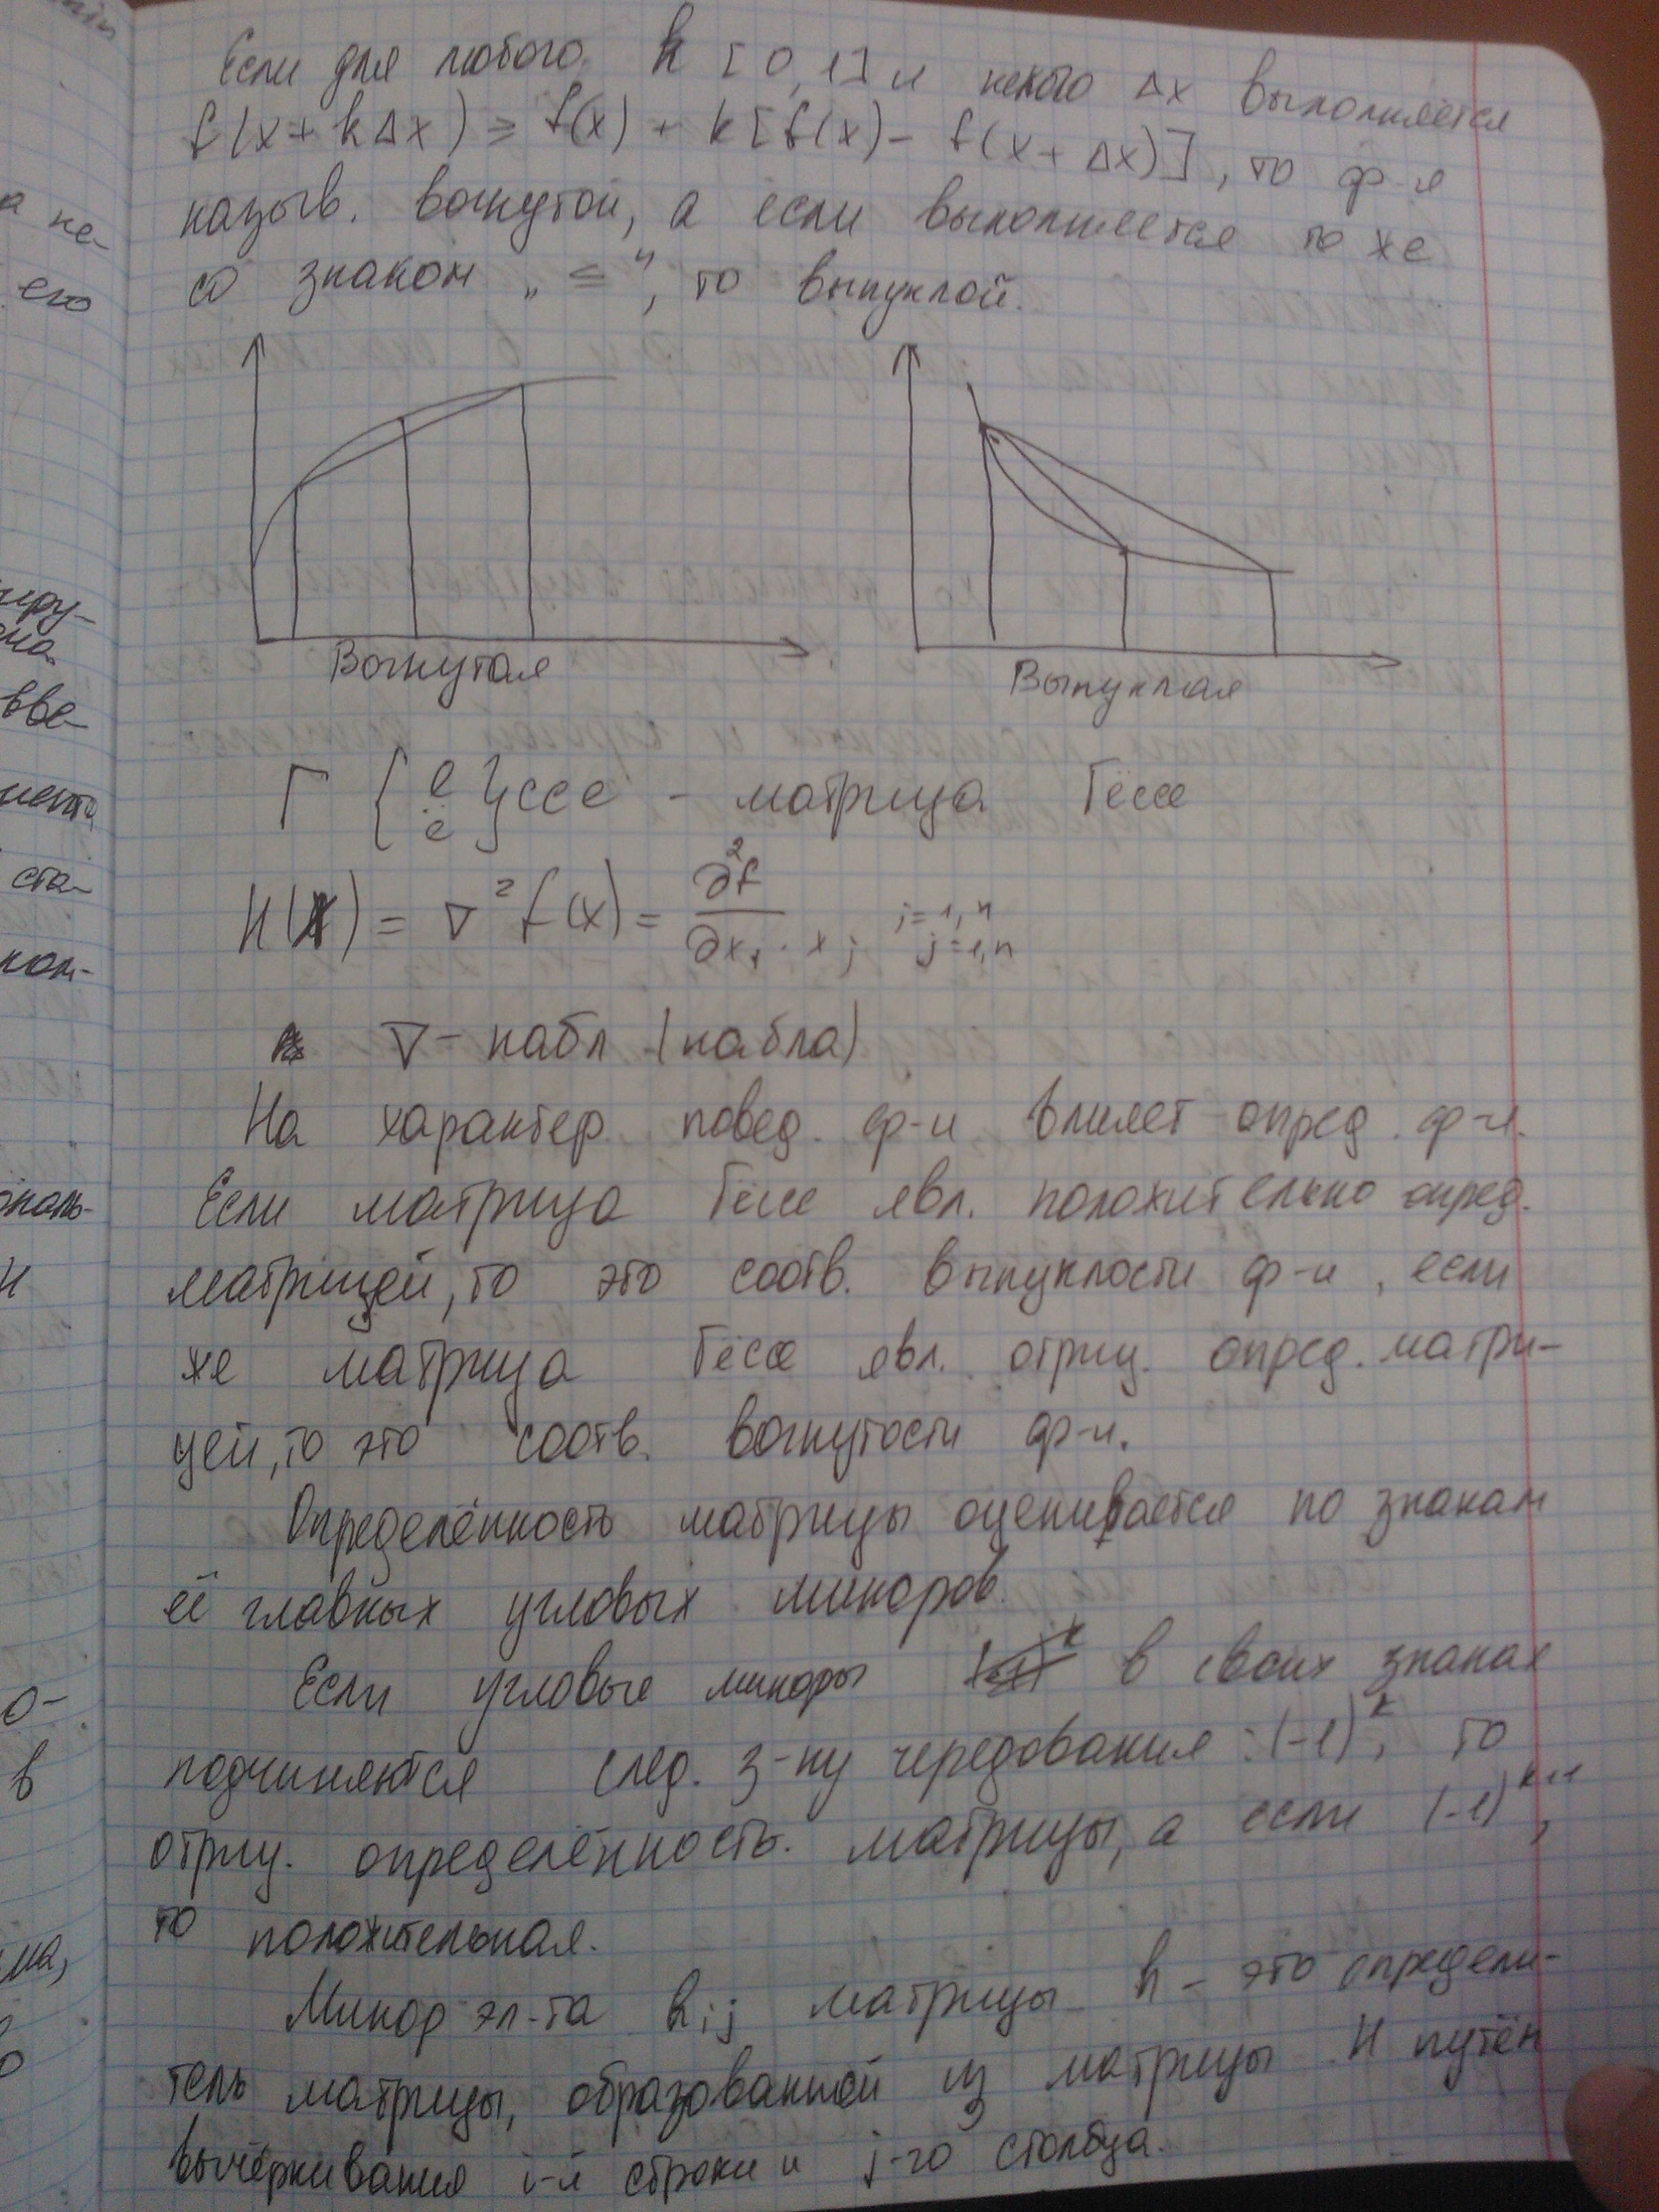 Если для любого k [0,1] и некого Δx выполняется
f(x+kΔx) ≥ f(x) + k[f(x) - f(x+Δx)], то ф-я
назыв. вогнутой, а если выполняется то же
со знаком „≤", то выпуклой.
Вогнутая
Выпуклая
Г { е ё } ссе - матрица Гёссе
H(X) = ∇² f(x) = ∂²f / ∂xi · xj i=1,n j=1,n
∇ - набл (набла)
На характер повед. ф-и влияет опред. ф-и.
Если матрица Гёссе явл. положительно опред.
матрицей, то это соотв. выпуклости ф-и, если
же матрица Гёссе явл. отриц. опред. матри-
цей, то это соотв. вогнутости ф-и.
Определённость матрицы оценивается по знакам
её главных угловых миноров.
Если угловые миноры в своих знаках
подчиняются след. з-ну чередования: (-1)^k, то
отриц. определённость. матрицы, а если (-1)^k+1,
то положительная.
Минор эл-та hij матрицы h - это определи-
тель матрицы, образованной из матрицы H путём
вычёркивания i-й строки и j-го столбца.
а не-
его
иру-
вве-
мента
ста-
ком-
ональ-
и
о-
в
ма,